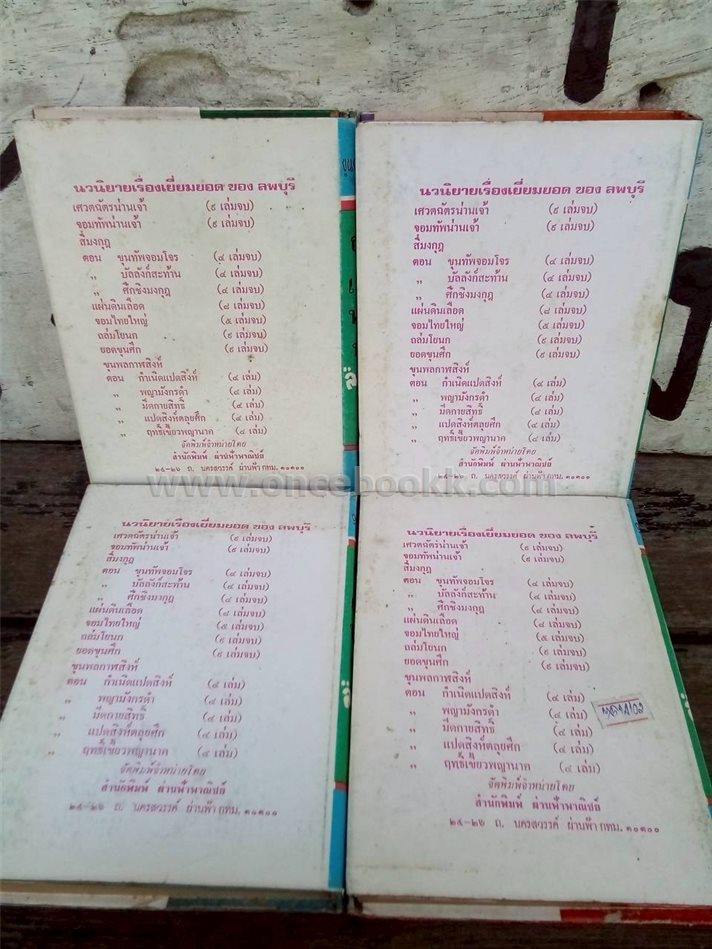 นวนิยายเรื่องเยี่ยมยอด ของ ลพบุรี
เศวตฉัตรน่านเจ้า (๙ เล่มจบ)
จอมทัพน่านเจ้า (๙ เล่มจบ)
สี่มงกุฎ
ตอน ขุนทัพจอมโจร (๔ เล่มจบ)
,, บัลลังก์สะท้าน (๔ เล่มจบ)
,, ศึกชิงมงกุฎ (๔ เล่มจบ)
แผ่นดินเลือด (๘ เล่มจบ)
จอมไทยใหญ่ (๕ เล่มจบ)
ถล่มโยนก (๙ เล่มจบ)
ยอดขุนศึก (๙ เล่มจบ)
ขุนพลกาฬสิงห์
ตอน กำเนิดแปดสิงห์ (๔ เล่ม)
,, พญามังกรดำ (๔ เล่ม)
,, มีดกายสิทธิ์ (๔ เล่ม)
,, แปดสิงห์ตลุยศึก (๔ เล่ม)
,, ฤทธิ์เขี้ยวพญานาค (๔ เล่ม)
จัดพิมพ์จำหน่ายโดย
สำนักพิมพ์ ผ่านฟ้าพาณิชย์
๒๔-๒๖ ถ. นครสวรรค์ ผ่านฟ้า กทม. ๑๐๑๐๐
นวนิยายเรื่องเยี่ยมยอด ของ ลพบุรี
เศวตฉัตรน่านเจ้า (๙ เล่มจบ)
จอมทัพน่านเจ้า (๙ เล่มจบ)
สี่มงกุฎ
ตอน ขุนทัพจอมโจร (๔ เล่มจบ)
,, บัลลังก์สะท้าน (๔ เล่มจบ)
,, ศึกชิงมงกุฎ (๔ เล่มจบ)
แผ่นดินเลือด (๘ เล่มจบ)
จอมไทยใหญ่ (๕ เล่มจบ)
ถล่มโยนก (๙ เล่มจบ)
ยอดขุนศึก (๙ เล่มจบ)
ขุนพลกาฬสิงห์
ตอน กำเนิดแปดสิงห์ (๔ เล่ม)
,, พญามังกรดำ (๔ เล่ม)
,, มีดกายสิทธิ์ (๔ เล่ม)
,, แปดสิงห์ตลุยศึก (๔ เล่ม)
,, ฤทธิ์เขี้ยวพญานาค (๔ เล่ม)
จัดพิมพ์จำหน่ายโดย
สำนักพิมพ์ ผ่านฟ้าพาณิชย์
๒๔-๒๖ ถ. นครสวรรค์ ผ่านฟ้า กทม. ๑๐๑๐๐
www.oncebookk.com
นวนิยายเรื่องเยี่ยมยอด ของ ลพบุรี
เศวตฉัตรน่านเจ้า (๙ เล่มจบ)
จอมทัพน่านเจ้า (๙ เล่มจบ)
สี่มงกุฎ
ตอน ขุนทัพจอมโจร (๔ เล่มจบ)
,, บัลลังก์สะท้าน (๔ เล่มจบ)
,, ศึกชิงมงกุฎ (๔ เล่มจบ)
แผ่นดินเลือด (๘ เล่มจบ)
จอมไทยใหญ่ (๕ เล่มจบ)
ถล่มโยนก (๙ เล่มจบ)
ยอดขุนศึก (๙ เล่มจบ)
ขุนพลกาฬสิงห์
ตอน กำเนิดแปดสิงห์ (๔ เล่ม)
,, พญามังกรดำ (๔ เล่ม)
,, มีดกายสิทธิ์ (๔ เล่ม)
,, แปดสิงห์ตลุยศึก (๔ เล่ม)
,, ฤทธิ์เขี้ยวพญานาค (๔ เล่ม)
จัดพิมพ์จำหน่ายโดย
สำนักพิมพ์ ผ่านฟ้าพาณิชย์
๒๔-๒๖ ถ. นครสวรรค์ ผ่านฟ้า กทม. ๑๐๑๐๐
นวนิยายเรื่องเยี่ยมยอด ของ ลพบุรี
เศวตฉัตรน่านเจ้า (๙ เล่มจบ)
จอมทัพน่านเจ้า (๙ เล่มจบ)
สี่มงกุฎ
ตอน ขุนทัพจอมโจร (๔ เล่มจบ)
,, บัลลังก์สะท้าน (๔ เล่มจบ)
,, ศึกชิงมงกุฎ (๔ เล่มจบ)
แผ่นดินเลือด (๘ เล่มจบ)
จอมไทยใหญ่ (๕ เล่มจบ)
ถล่มโยนก (๙ เล่มจบ)
ยอดขุนศึก (๙ เล่มจบ)
ขุนพลกาฬสิงห์
ตอน กำเนิดแปดสิงห์ (๔ เล่ม)
,, พญามังกรดำ (๔ เล่ม)
,, มีดกายสิทธิ์ (๔ เล่ม)
,, แปดสิงห์ตลุยศึก (๔ เล่ม)
,, ฤทธิ์เขี้ยวพญานาค (๔ เล่ม)
จัดพิมพ์จำหน่ายโดย
สำนักพิมพ์ ผ่านฟ้าพาณิชย์
๒๔-๒๖ ถ. นครสวรรค์ ผ่านฟ้า กทม. ๑๐๑๐๐